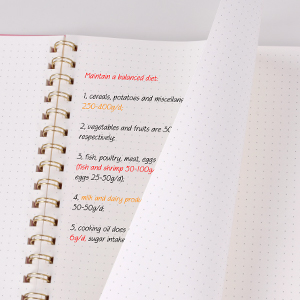 Maintain a balanced diet:
1, cereals, potatoes and miscellane
250-400g/d;
2, vegetables and fruits are 30
respectively;
3, fish, poultry, meat, eggs
(fish and shrimp 50-100g
eggs 25-50g/d);
4, milk and dairy produ
30-50g/d;
5, cooking oil does
6g/d, sugar intake